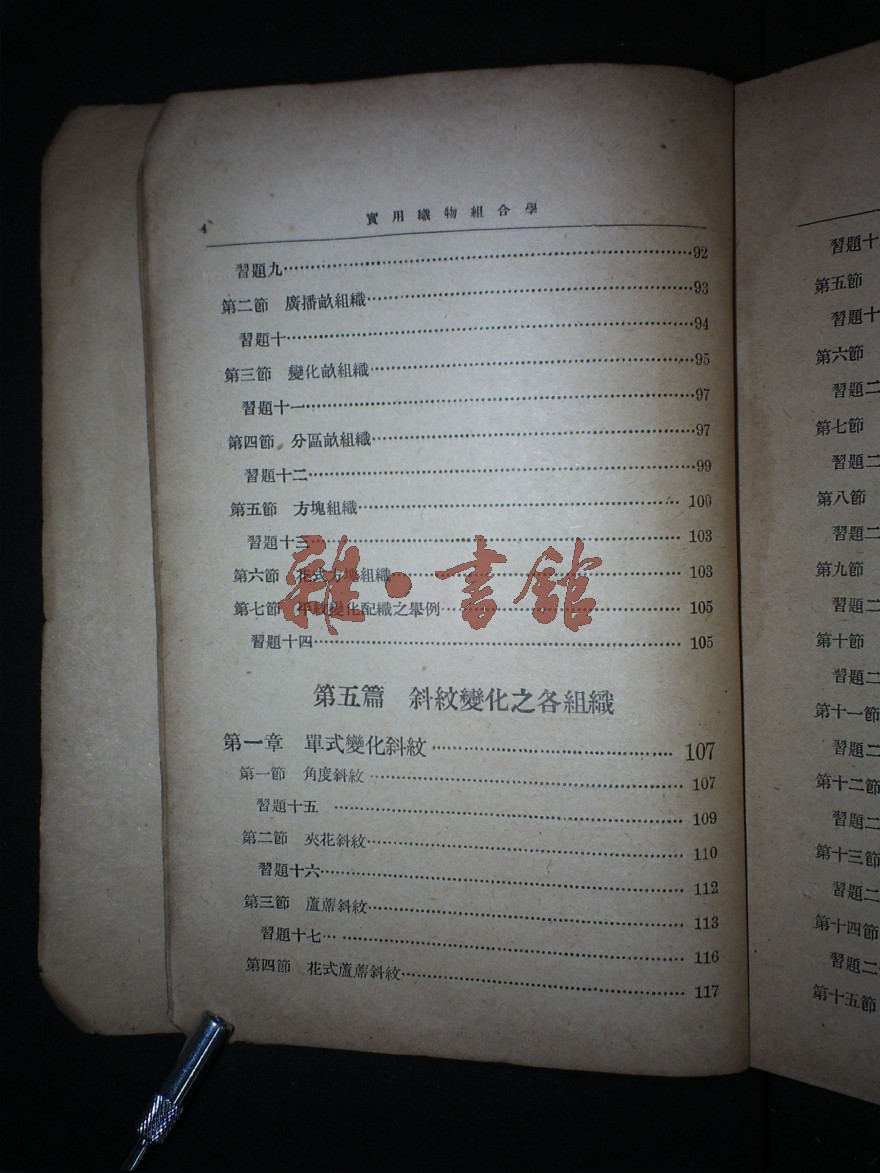 4 實用織物組合學
習題九……92
第二節 廣播畝組織……93
習題十……94
第三節 變化畝組織……95
習題十一……97
第四節 分區畝組織……97
習題十二……99
第五節 方塊組織……100
習題十三……103
第六節 花式方塊組織……103
第七節 平紋變化配織之舉例……105
習題十四……105
第五篇 斜紋變化之各組織
第一章 單式變化斜紋……107
第一節 角度斜紋……107
習題十五……109
第二節 夾花斜紋……110
習題十六……112
第三節 蘆蓆斜紋……113
習題十七……116
第四節 花式蘆蓆斜紋……117
雜·書館
習題十
第五節
習題十
第六節
習題二
第七節
習題二
第八節
習題二
第九節
習題二
第十節
習題二
第十一節
習題二
第十二節
習題二
第十三節
習題二
第十四節
習題二
第十五節